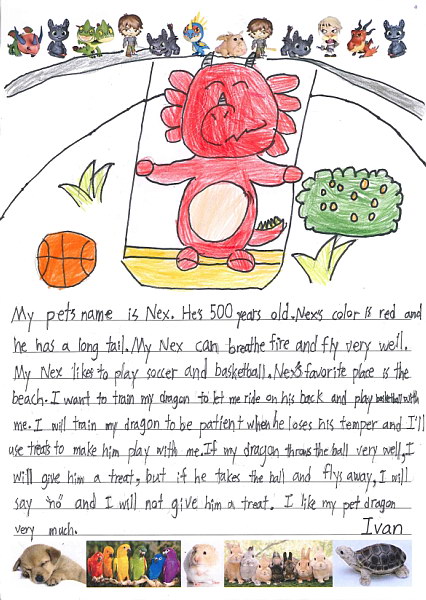 My pets name is Nex. He's 500 years old. Nex's color is red and
he has a long tail. My Nex can breathe fire and fly very well.
My Nex likes to play soccer and basketball. Nex's favorite place is the
beach. I want to train my dragon to let me ride on his back and play basketball with
me. I will train my dragon to be patient when he loses his temper and I'll
use treats to make him play with me. If my dragon throws the ball very well, I
will give him a treat, but if he takes the ball and flys away, I will
say "no" and I will not give him a treat. I like my pet dragon
very much. Ivan